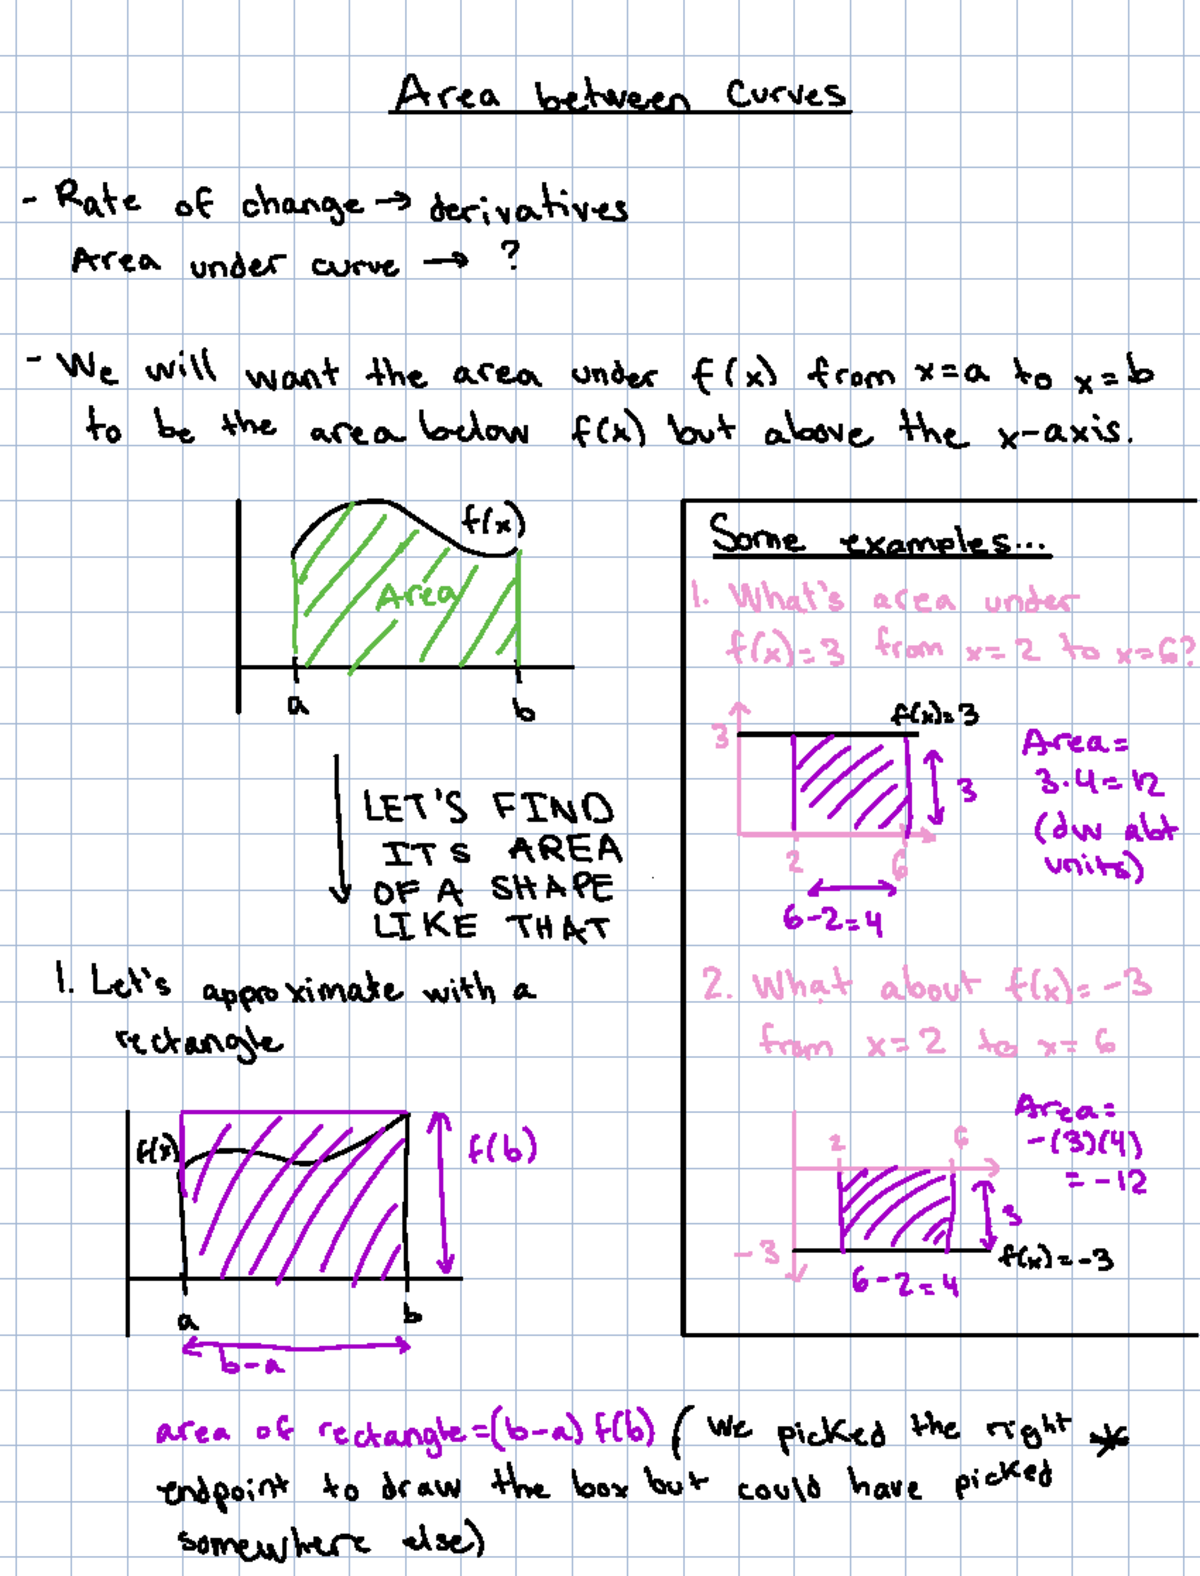 Area between Curves
- Rate of change → derivatives
Area under curve → ?
- We will want the area under f(x) from x=a to x=b
to be the area below f(x) but above the x-axis.
f(x)
Area
a
b
LET'S FIND
ITS AREA
OF A SHAPE
LIKE THAT
1. Let's approximate with a
rectangle
f(x)
f(b)
a
b
b-a
Some examples...
1. What's area under
f(x)=3 from x=2 to x=6?
f(x)=3
3
3
2
6
6-2=4
Area=
3·4=12
(dw abt
units)
2. What about f(x)=-3
from x=2 to x=6
2
6
3
-3
f(x)=-3
6-2=4
Area=
-(3)(4)
=-12
area of rectangle=(b-a) f(b) (We picked the right *
endpoint to draw the box but could have picked
somewhere else)